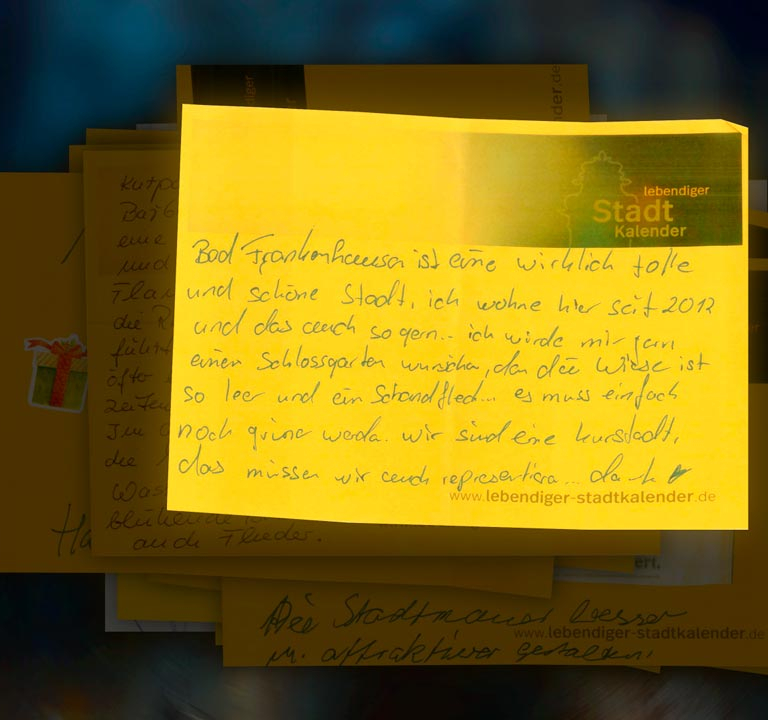 lebendiger
Stadt
Kalender
Bad Frankenhausen ist eine wirklich tolle
und schöne Stadt, ich wohne hier seit 2012
und das auch so gern.. ich würde mir gern
einen Schlossgarten wünschen, da die Wiese ist
so leer und ein Schandfleck... es muss einfach
noch grüner werden. wir sind eine Kurstadt,
das müssen wir auch representieren... danke
www.lebendiger-stadtkalender.de
eine
und
die
führt
öfter
Im
die
Was
blühende
auch Flieder.
Ha
ert.
Die Stadtmauer besser
u. attraktiver gestalten.
www.lebendiger-stadtkalender.de